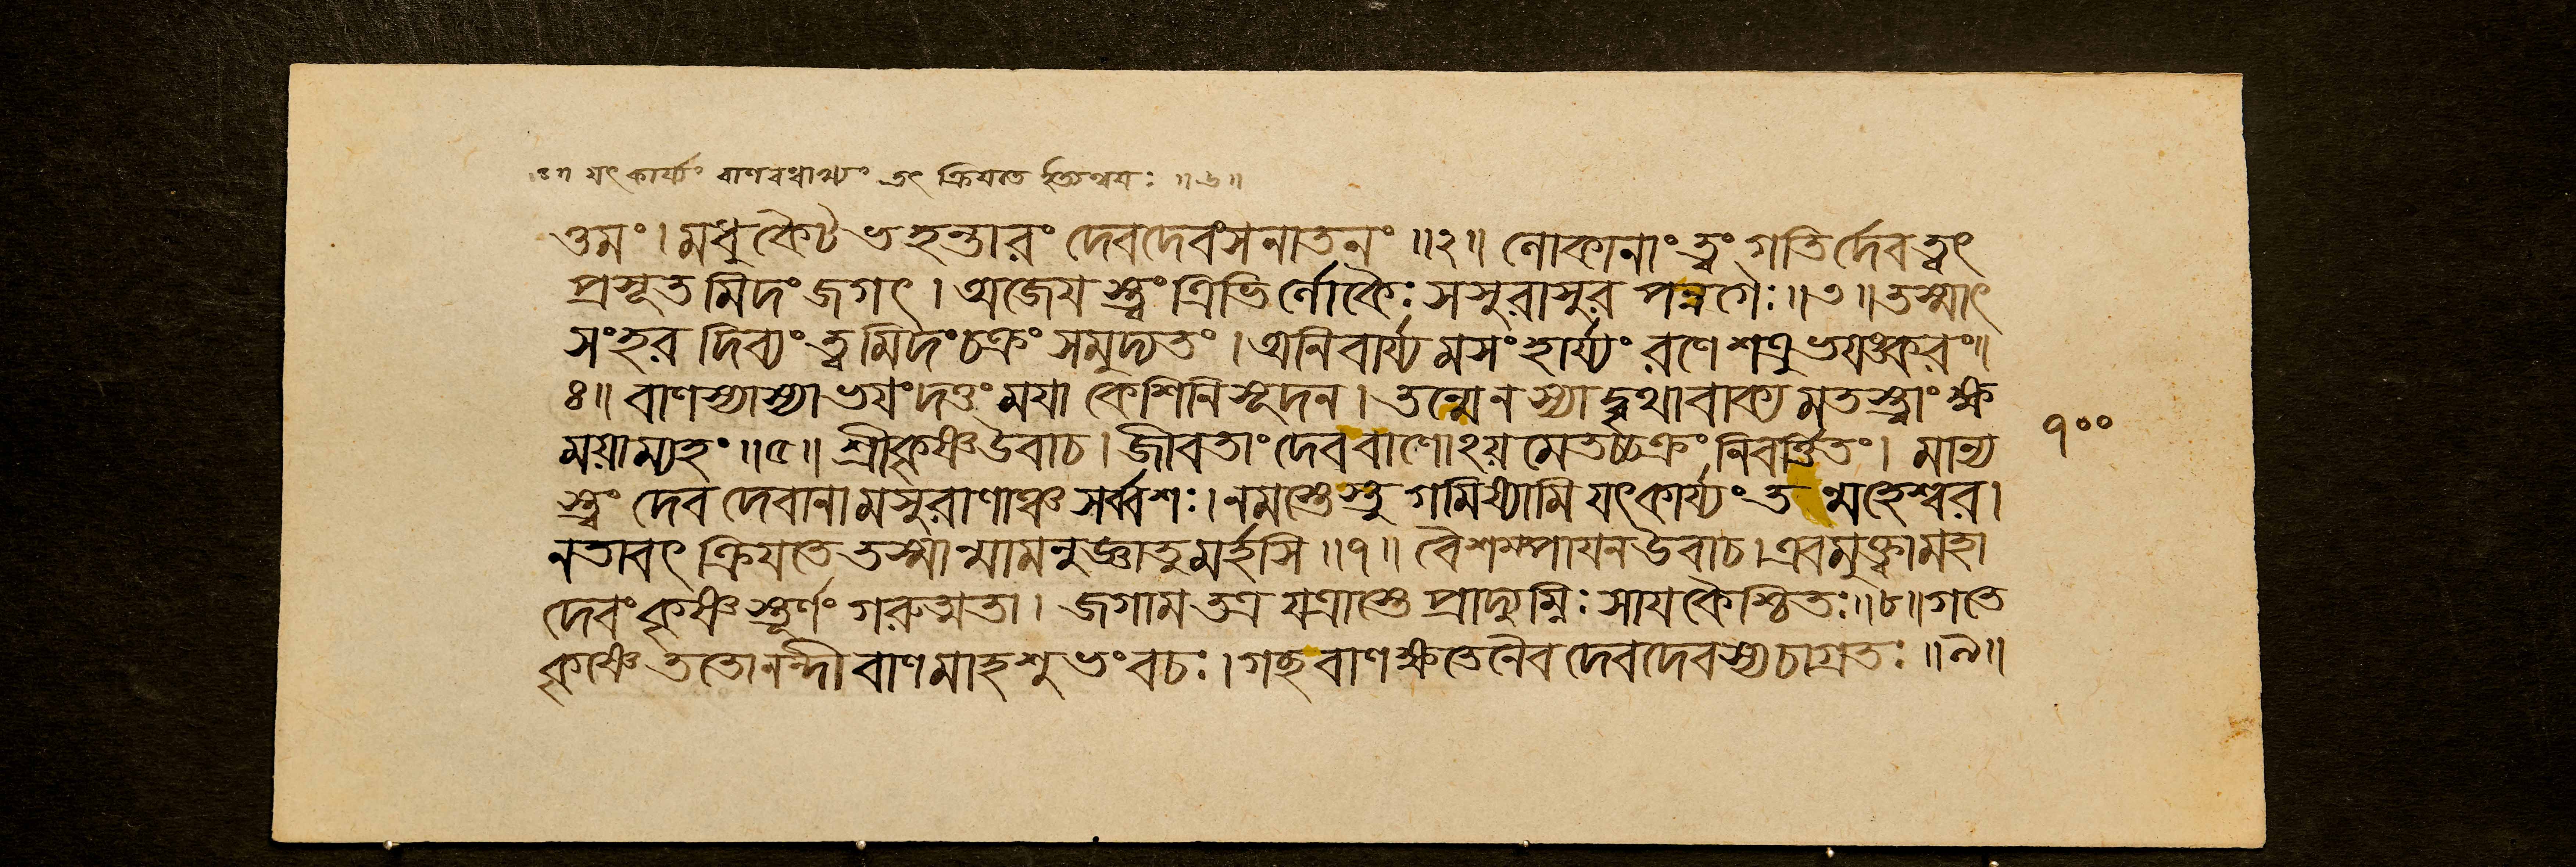 ৬॥ যৎ কার্য্যং বাণবধাখ্যং তৎ ক্রিয়তে ইত্যন্বয়ঃ ॥৬॥
ত্তমং। মধুকৈটভহন্তারং দেবদেবংসনাতনং ॥২॥ লোকানাং ত্বং গতির্দেব ত্বৎ
প্রসূতমিদং জগৎ। অজেয স্ত্বং ত্রিভি র্লোকৈঃ সসুরাসুর পন্নগৈঃ ॥৩॥ তস্মাৎ
সংহর দিব্যং ত্বমিদংচক্রং সমুদ্যতং। অনিবার্য্যমসংহার্য্যং রণে শত্রুভযঙ্করং॥
৪॥ বাণস্যাস্যাভযংদত্তং মযা কেশিনিসূদন। তন্মেনস্যাদ্বৃথাবাক্যমতস্ত্বাং ক্ষ
ময়াম্যহং ॥৫॥ শ্রীকৃষ্ণউবাচ। জীবতাং দেববাণোঽয়মেতচ্চক্রং নিবর্ত্তিতং। মান্য
স্ত্বং দেব দেবানামসুরাণাঞ্চ সর্ব্বশঃ। নমস্তেস্তু গমিষ্যামি যৎকার্য্যং তন্মহেশ্বর।
নতাবৎ ক্রিযতে তস্মান্মামনুজ্ঞাতুমর্হসি ॥৭॥ বৈশম্পাযনউবাচ। এবমুক্ত্বামহা
দেবং কৃষ্ণস্তূর্ণং গরুত্মতা। জগাম তত্র যত্রাস্তে প্রাদ্যুম্নিঃ সাযকৈশ্চিতঃ॥৮॥ গতে
কৃষ্ণে ততোনন্দী বাণমাহশুভংবচঃ। গচ্ছবাণ ক্ষতেনৈব দেবদেবস্যচাগ্রতঃ ॥৯॥
৭০০